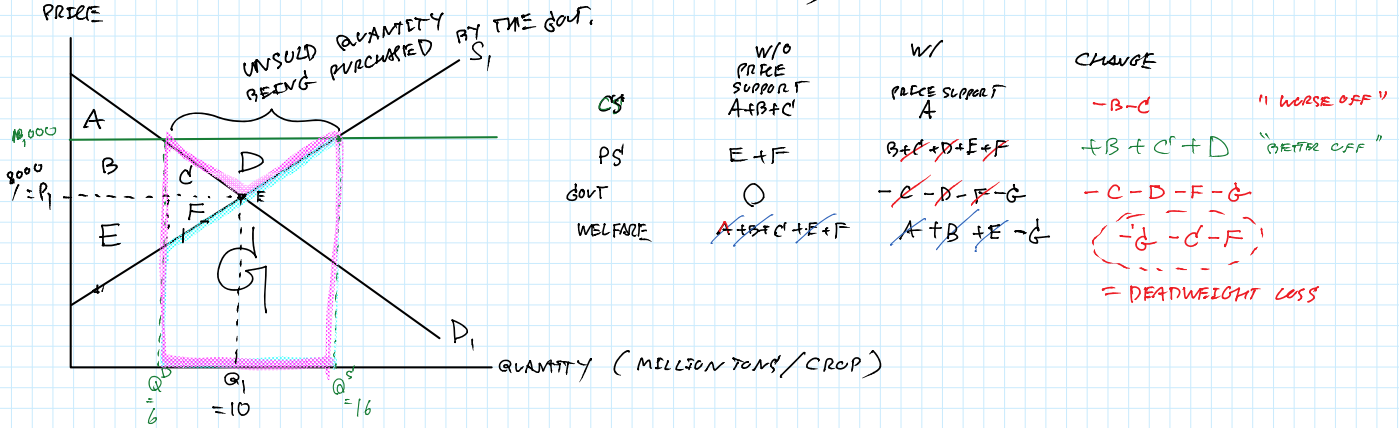 PRICE
UNSOLD QUANTITY
BEING PURCHASED BY THE GOVT.
S1
A
10,000
B
C
D
8000
/=P1
E
E
F
G
D1
QUANTITY (MILLION TONS/CROP)
QD
=
6
Q1
=10
QS
=16
W/O PRICE SUPPORT
W/ PRICE SUPPORT
CHANGE
CS A+B+C A -B-C "WORSE OFF"
PS E+F B+C+D+E+F +B+C+D "BETTER OFF"
GOVT 0 -C-D-F-G -C-D-F-G
WELFARE A+B+C+E+F A+B+E-G -G-C-F
= DEADWEIGHT LOSS